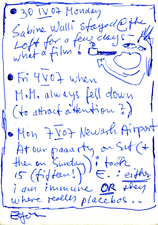 30 IV 07 Monday
Sabine Walli stayed @ the
Loft for a few days -
what a film!
Fri 4 V 07 when
M.M. always fell down
(to attract attention?)
Mon 7 V 07 Newark Airport
At our paaarty on Sat (+
then on Sunday) i took
15 (fifteen!) E.: either
i am immune OR they
where really placebos...